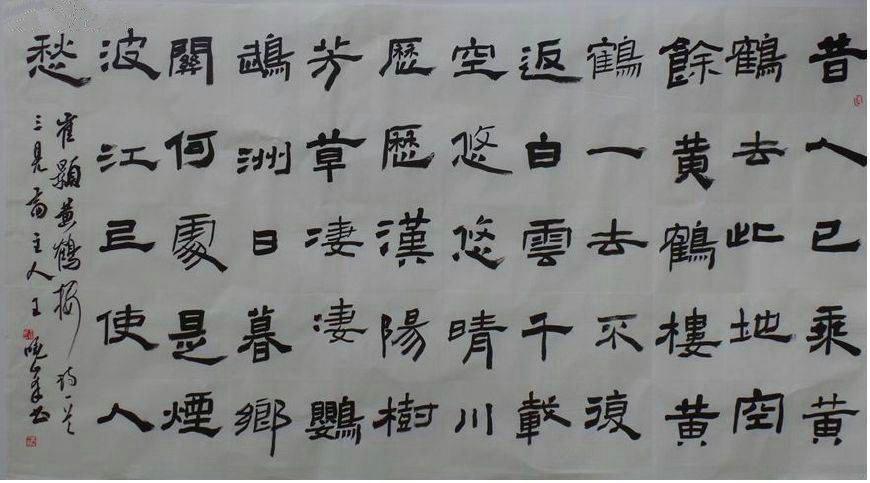 昔人已乘黄
鶴去此地空
餘黄鶴樓黄
鶴一去不復
返白雲千載
空悠悠晴川
歷歷漢陽樹
芳草凄凄鸚
鵡洲日暮鄉
關何處是煙
波江上使人
愁
崔顥黄鶴樓詩一首
三見齋主人王曉書